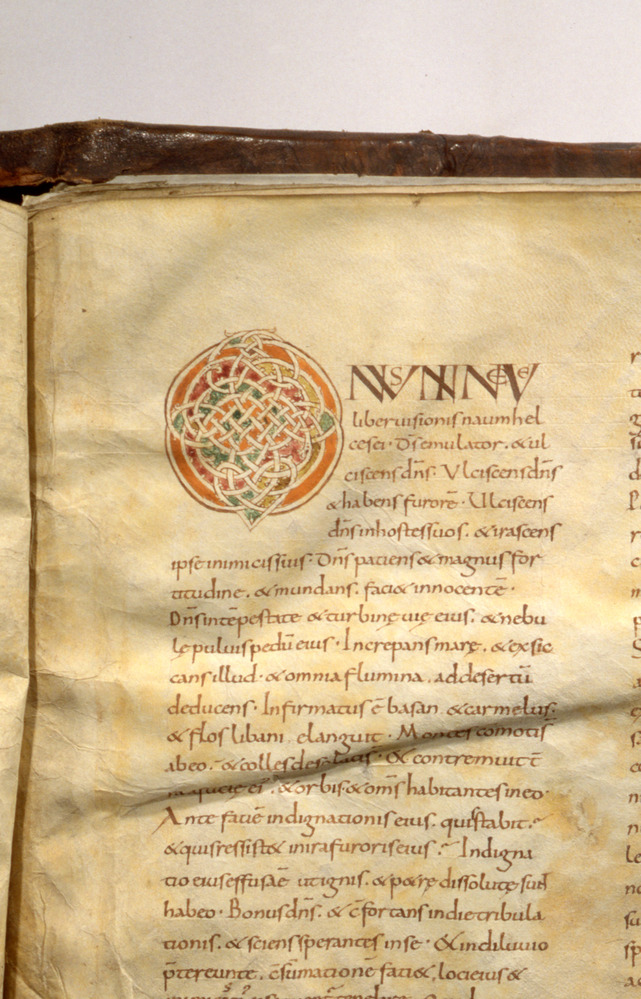 ONUS NINEVE
liber visionis naum hel
cesei · Ds̄ emulator · & ul
ciscens dn̄s · Ulciscens dn̄s
& habens furorē · Ulciscens
dn̄s in hostes suos · & irascens
ipse inimicis suis · Dn̄s patiens & magnus for
titudine · & mundans · faci& innocentē ·
Dn̄s in tēpestate & turbinę vię eius · & nebu
lę pulvis pedū eius · Increpans marę · & exsic
cans illud · & omnia flumina · ad desertū
deducens · Infirmatus ē basan · & carmelus ·
& flos libani elanguit · Montes comoti s̄
ab eo · & colles desolati s̄ · & contremuit t̄
ra & orbis & om̄s habitantes in eo ·
Ante faciē indignationis eius · quis stabit ·
& quis resist& in ira furoris eius · Indigna
tio eius effusa ē ut ignis · & p&rę dissolutę sunt
ab eo · Bonus dn̄s · & c̄fortans in die tribula
tionis · & sciens sperantes in se · & in diluvio
p̄tereunte · c̄sūmationē faci& · loci eius &